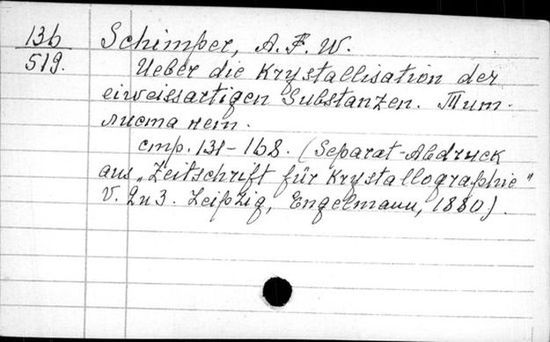 136
519.
Schimper, A. F. W.
Ueber die Krystallisation der
eiweissartigen Substanzen. Тит.
листа нет.
стр. 131-168. (Separat-Abdruck
aus „Zeitschrift für Krystallographie"
V. 2 u 3. Leipzig, Engelmann, 1880).